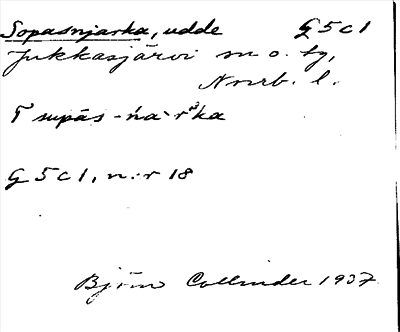 Sopasnjarka, udde G 5 c 1
Jukkasjärvi sn o. tg,
Norrb. l.
G 5 c 1, n:r 18
Björn Collinder 1937